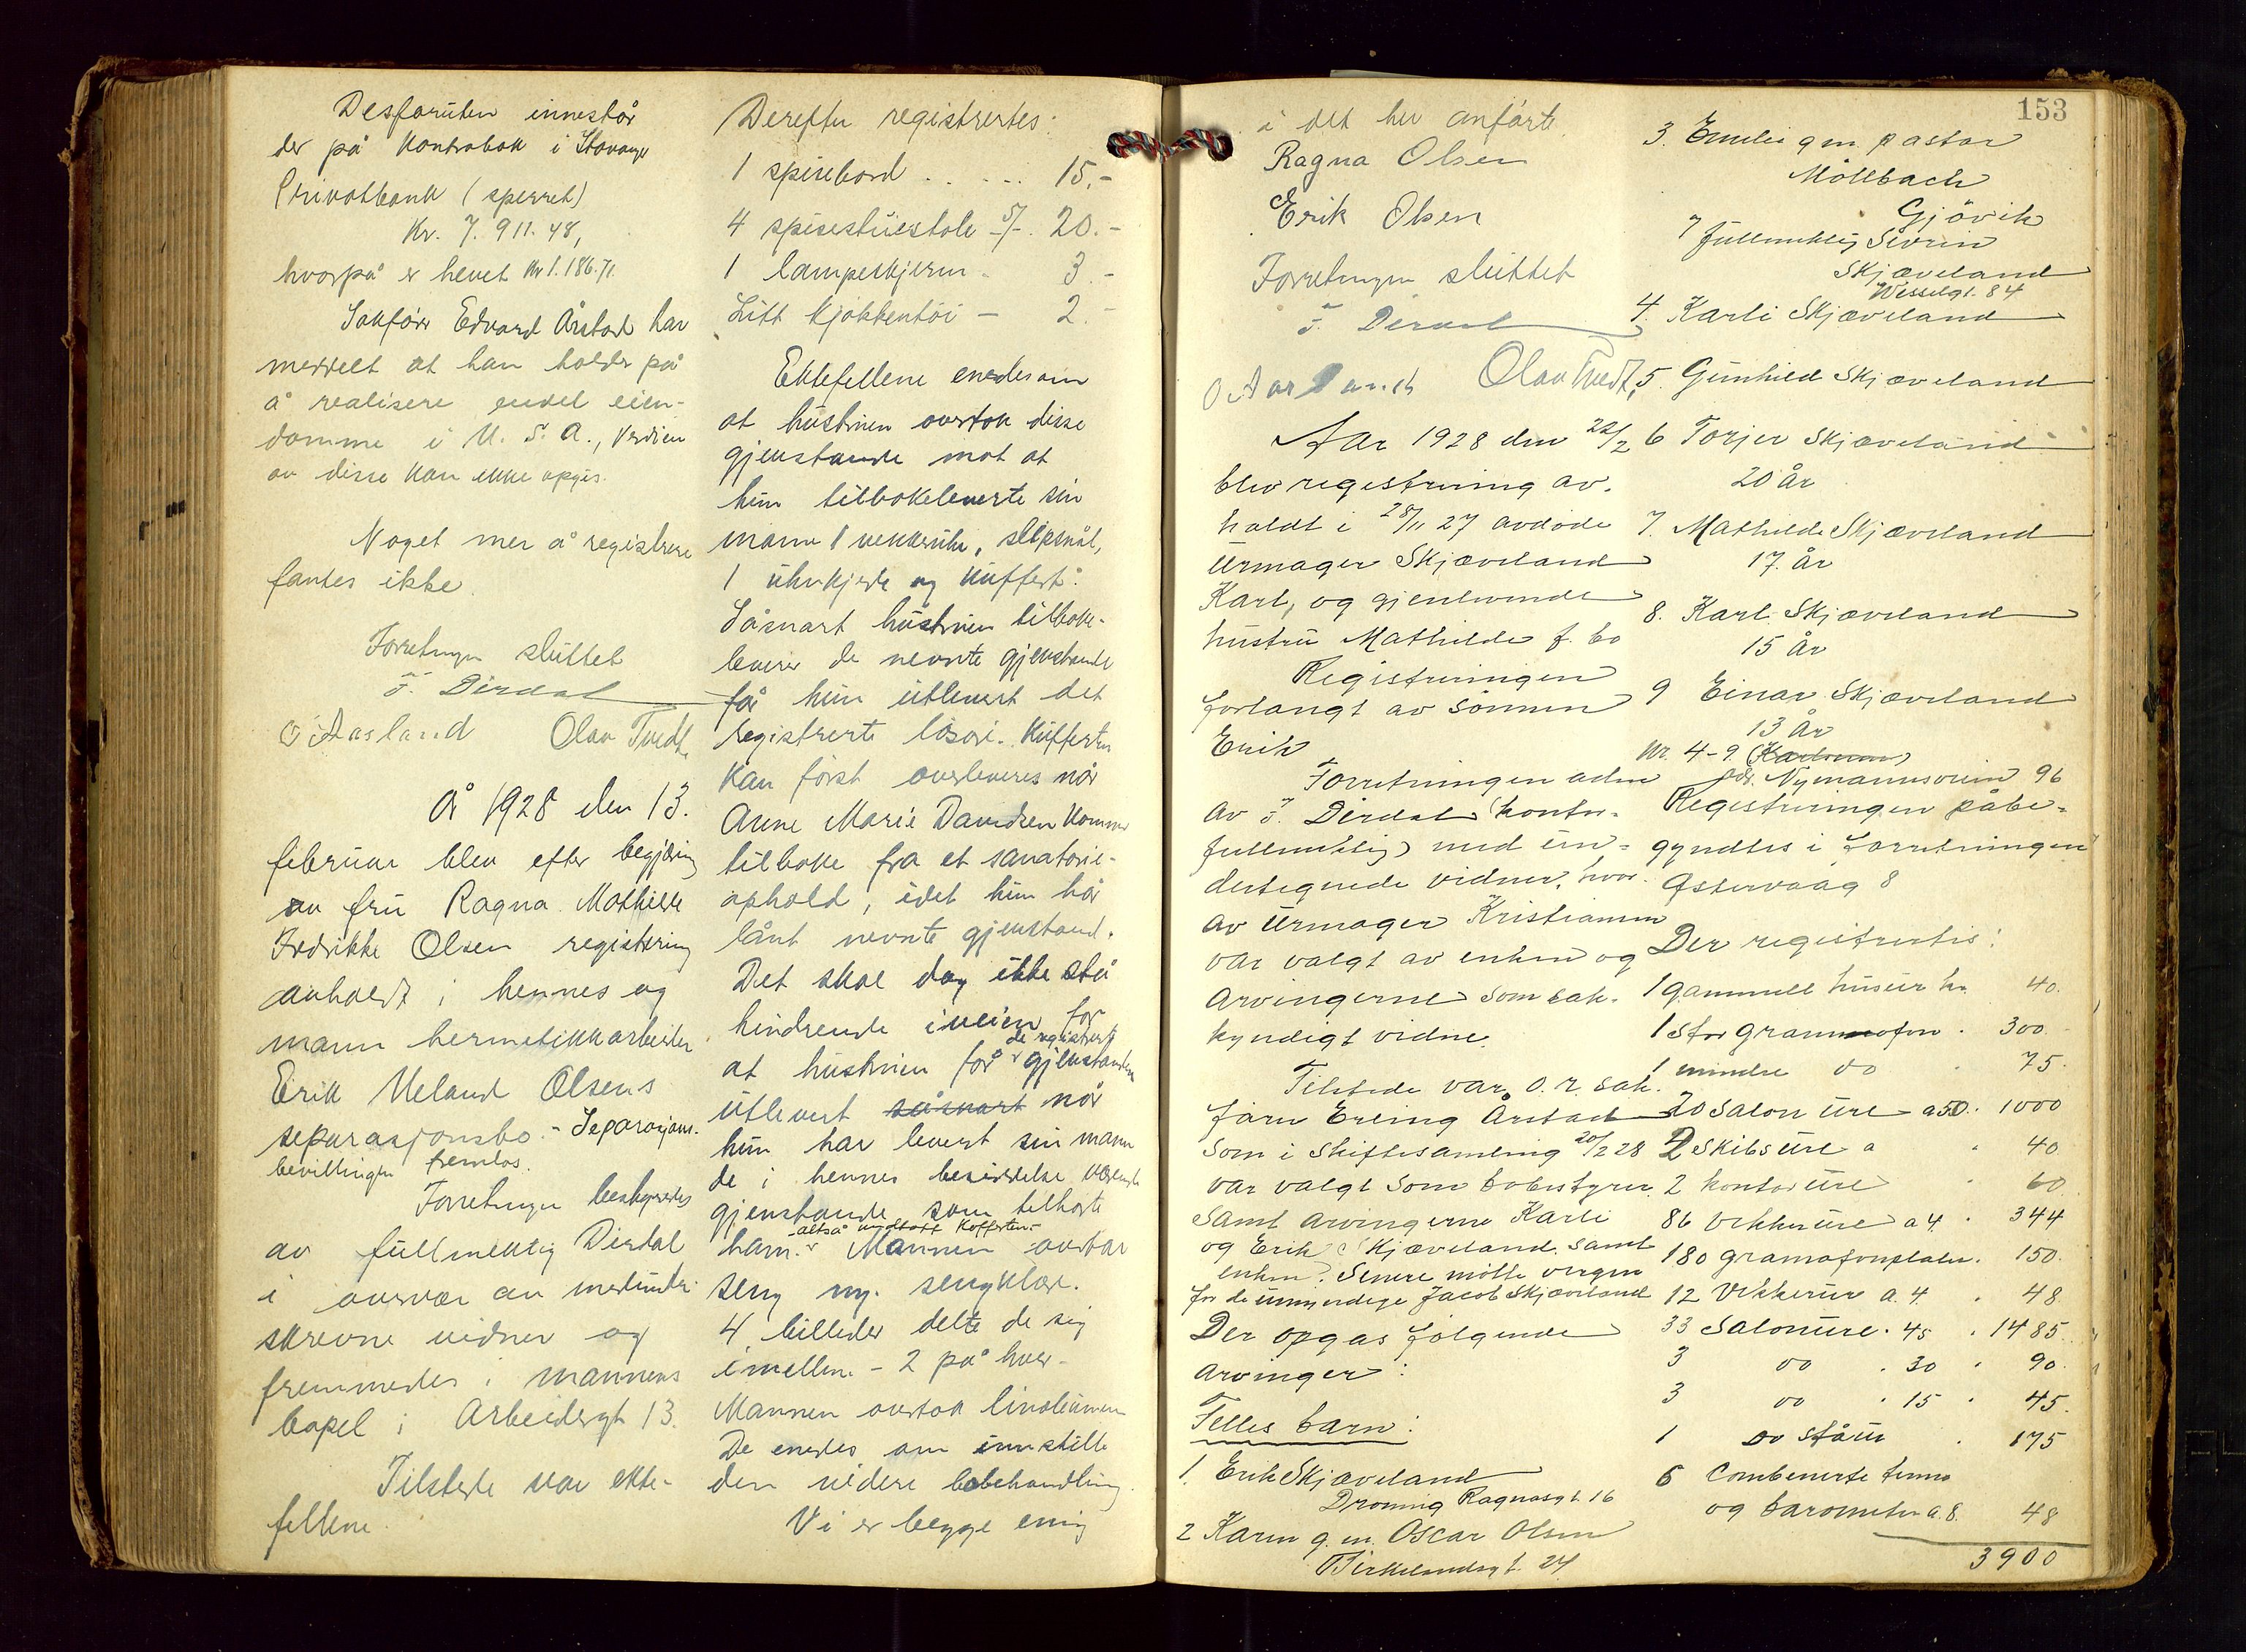 Desforuten innestår
der på Kontrabok i Stavanger
Privatbank (sperret)
Kr. 7.911.48,
hvorpå er hevet Kr 1.186.71.
Sakfører Edvard Årstad har
meddelt at han holder på
å realisere endel eien-
domme i U.S.A., Verdien
av disse kan ikke opgis.
Noget mer å registrere
fantes ikke.
Forretningen sluttet
F. Dirdal
O Aasland Olav Tvedt
År 1928 den 13.
februar blev efter begjæring
av fru Ragna Mathilde
Fredrikke Olsen registrering
avholdt i hennes og
mann hermetikkarbeider
Erik Meland Olsens
separasjonsbo. - Separasjons-
bevillingen fremlås.
Forretningen bestyredes
av fullmektig Dirdal
i overvær av medunder-
skrevne vidner og
fremmedes i mannens
bopel i Arbeidergt 13.
Tilstede var ekte-
fellene.
Derefter registrertes:
1 spisebord . . . . . 15.-
4 spisestuestole 5/- 20.-
1 lampeskjerm - 3.-
Litt kjøkkentøi - 2.-
Ektefellene enedes om
at hustruen overtok disse
gjenstande mot at
hun tilbakeleverte sin
mann 1 vekkeruhr, slipsnål,
1 uhrkjede og kuffert.
Såsnart hustruen tilbake-
leverer de nevnte gjenstande
får hun utlevert det
registrerte løsøre. Kufferten
kan først overleveres når
Anne Marie Davidsen kommer
tilbake fra et sanatorie-
ophold, idet hun har
lånt nevnte gjenstand.
Det skal dog ikke stå
hindrende i veien for
at hustruen får de registrerte gjenstandene
utlevert såsnart når
hun har levert sin mann
de i hennes besiddelse værende
gjenstande som tilhørte
ham - altså undtatt kofferten.- Mannen overtar
seng m. sengklær.
4 billeder delte de sig
imellem - 2 på hver.
Mannen overtok linoleumen
De enedes om innstille
den videre bobehandling.
Vi er begge enig
153
i det her anførte.
Ragna Olsen
Erik Olsen
Forretningen sluttet
F. Dirdal
O Aasland Olav Tvedt
Aar 1928 den 22/2
blev registrering av-
holdt i 28/11 27 avdøde
Urmager Skjæveland
Karl, og gjenlevende
hustru Mathilde f. bo
Registreringen
forlangt av sønnen
Erik
Forretningen adm
av F. Dirdal (kontor-
fullmektig) med un-
dertegnede vidner, hvor-
av Urmager Kristiansen
var valgt av enken og
Arvingerne som sak-
kyndigt vidne.
Tilstede var O.r. sak-
fører Erling Årstad
som i skiftesamling 20/2 28
var valgt som bobestyrer
samt arvingerne Karli
og Erik Skjæveland, samt
enken. Senere møtte vergen
for de umyndige Jacob Skjæveland
Der opgas følgende
arvinger:
Felles barn:
1. Erik Skjæveland
Dronning Ragnasgt 16
2 Karen g. m. Oscar Olsen
Birkelandsgt. 24
3. Emilie g m. pastor
Möllbach
Gjövik
7 fullmektig Sevrin
Skjæveland
Wesselgt. 84
4. Karli Skjæveland
5. Gunhild Skjæveland
6 Torjer Skjæveland
20 år
7. Mathilde Skjæveland
17. år
8. Karl Skjæveland
15 år
9 Einar Skjæveland
13 år
Nr. 4-9
adr. Nymannsveien 96
Registreringen påbe-
gyndtes i forretningen
Østervaag 8
Der registrertes:
1 gammell husur kr. 40.
1 stor grammofon . 300
1 mindre do . 75.
20 Salon ure a 50. 1000
2 Skibsure a " 40
2 kontorure " 60
86 Vekkerure a 4 . 344
180 gramofonplater . 150.
12 Vekkerur a. 4. . 48
33 Salonure . 45 . 1485.
3 do . 30 . 90.
3 do . 15 . 45.
1 do ståur . 175
6 Combinerte termo
og barometer a. 8. 48
3900